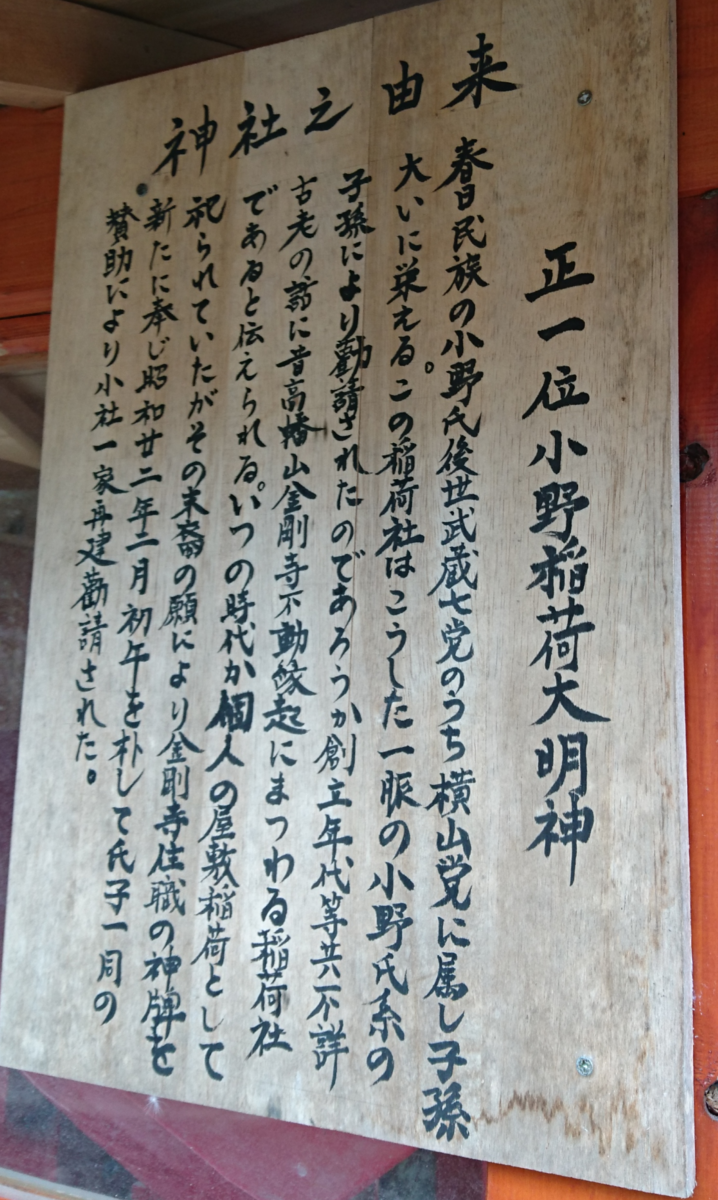 正一位小野稲荷大明神
神社之由来
春日民族の小野氏後世武蔵七党のうち横山党に属し子孫
大いに栄える。この稲荷社はこうした一脈の小野氏系の
子孫により勸請されたのであろうか創立年代等共不詳
古老の話に昔高幡山金剛寺不動縁起にまつわる稲荷社
であると伝えられる。いつの時代か個人の屋敷稲荷として
祀られていたがその末裔の願により金剛寺住職の神牌を
新たに奉じ昭和廿二年二月初午を朴して氏子一同の
賛助により小社一家再建勸請された。